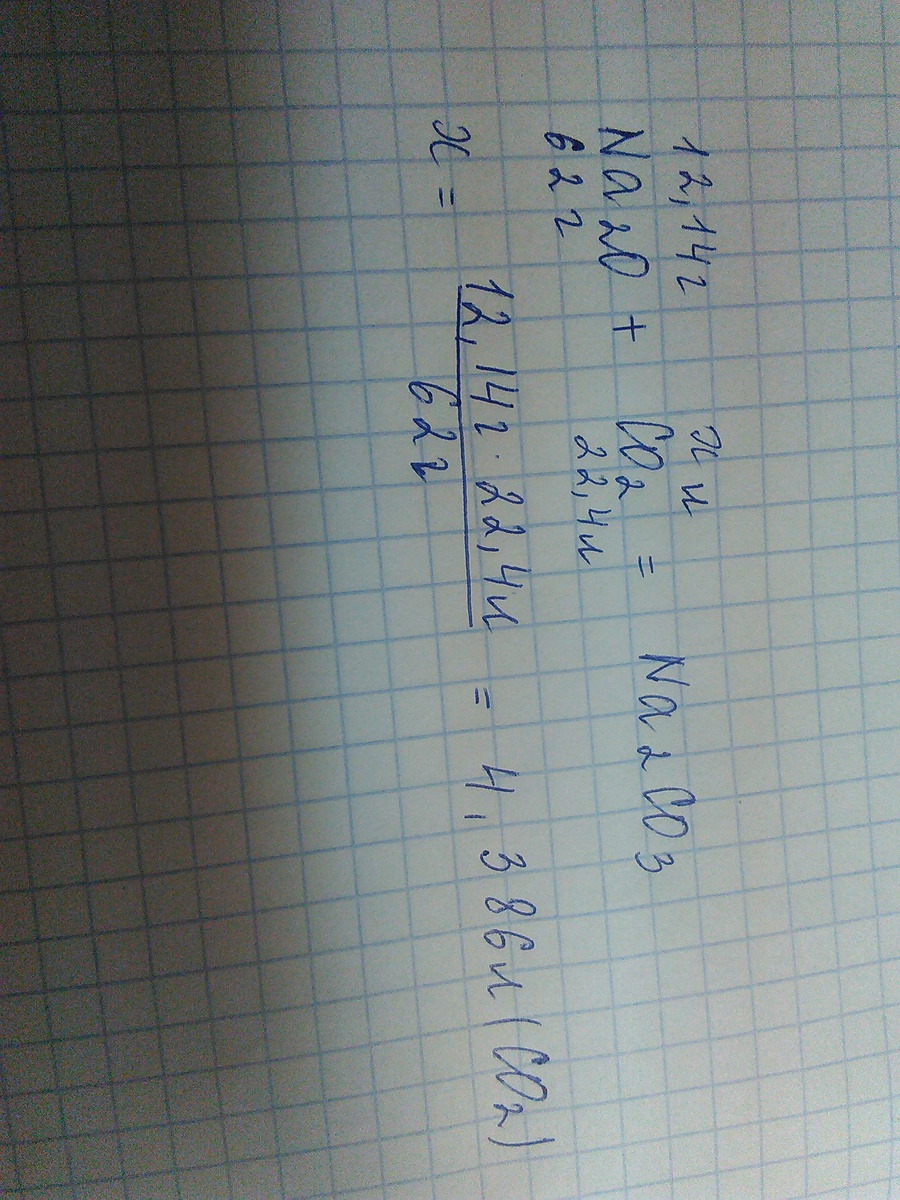 12,14г x л
Na2O + CO2 = Na2CO3
62г 22,4л
x = 12,14г · 22,4л / 62г = 4,386л (CO2)